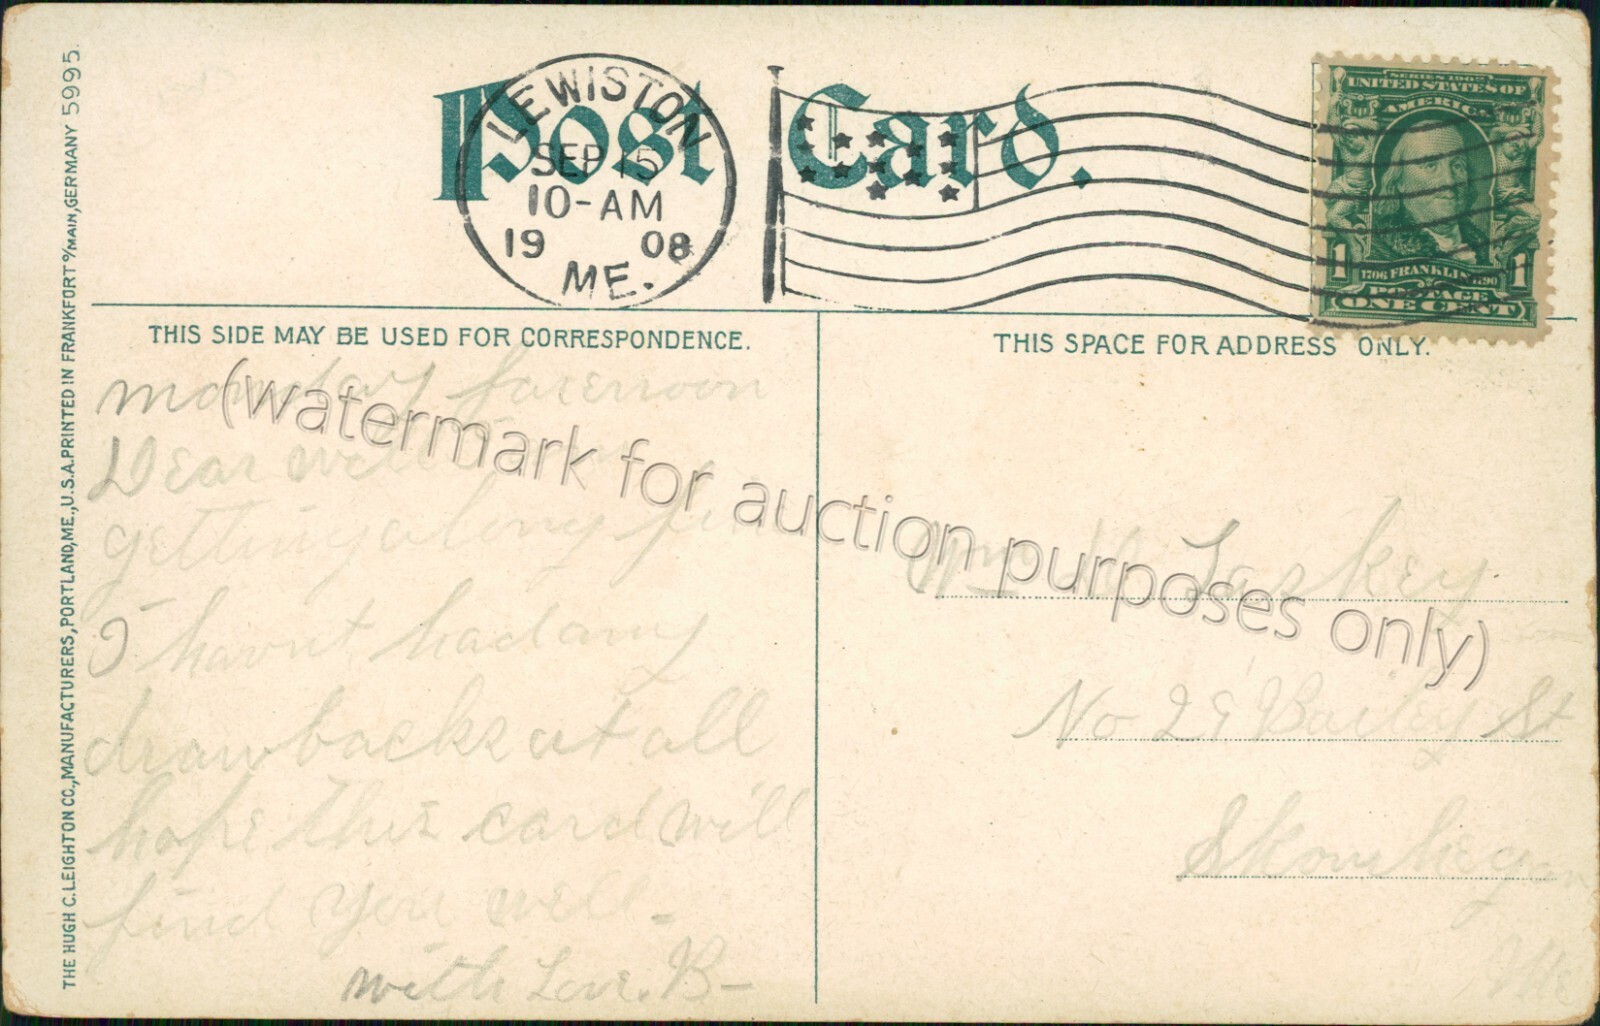 Post Card.
LEWISTON
SEP 15
10-AM
19 08
ME.
SERIES 1902
UNITED STATES OF
AMERICA
1706 FRANKLIN 1790
1 1
POSTAGE
ONE CENT
THIS SIDE MAY BE USED FOR CORRESPONDENCE.
THIS SPACE FOR ADDRESS ONLY.
THE HUGH C. LEIGHTON CO., MANUFACTURERS, PORTLAND, ME., U.S.A. PRINTED IN FRANKFORT o/MAIN, GERMANY 5995.
monday forenoon
Dear
getting along
I havnt had any
drawbacks at all
hope this card will
find you well-
with Love. B-
Laskey
No 29 Bailey St
Skowhegan
Me
(watermark for auction purposes only)